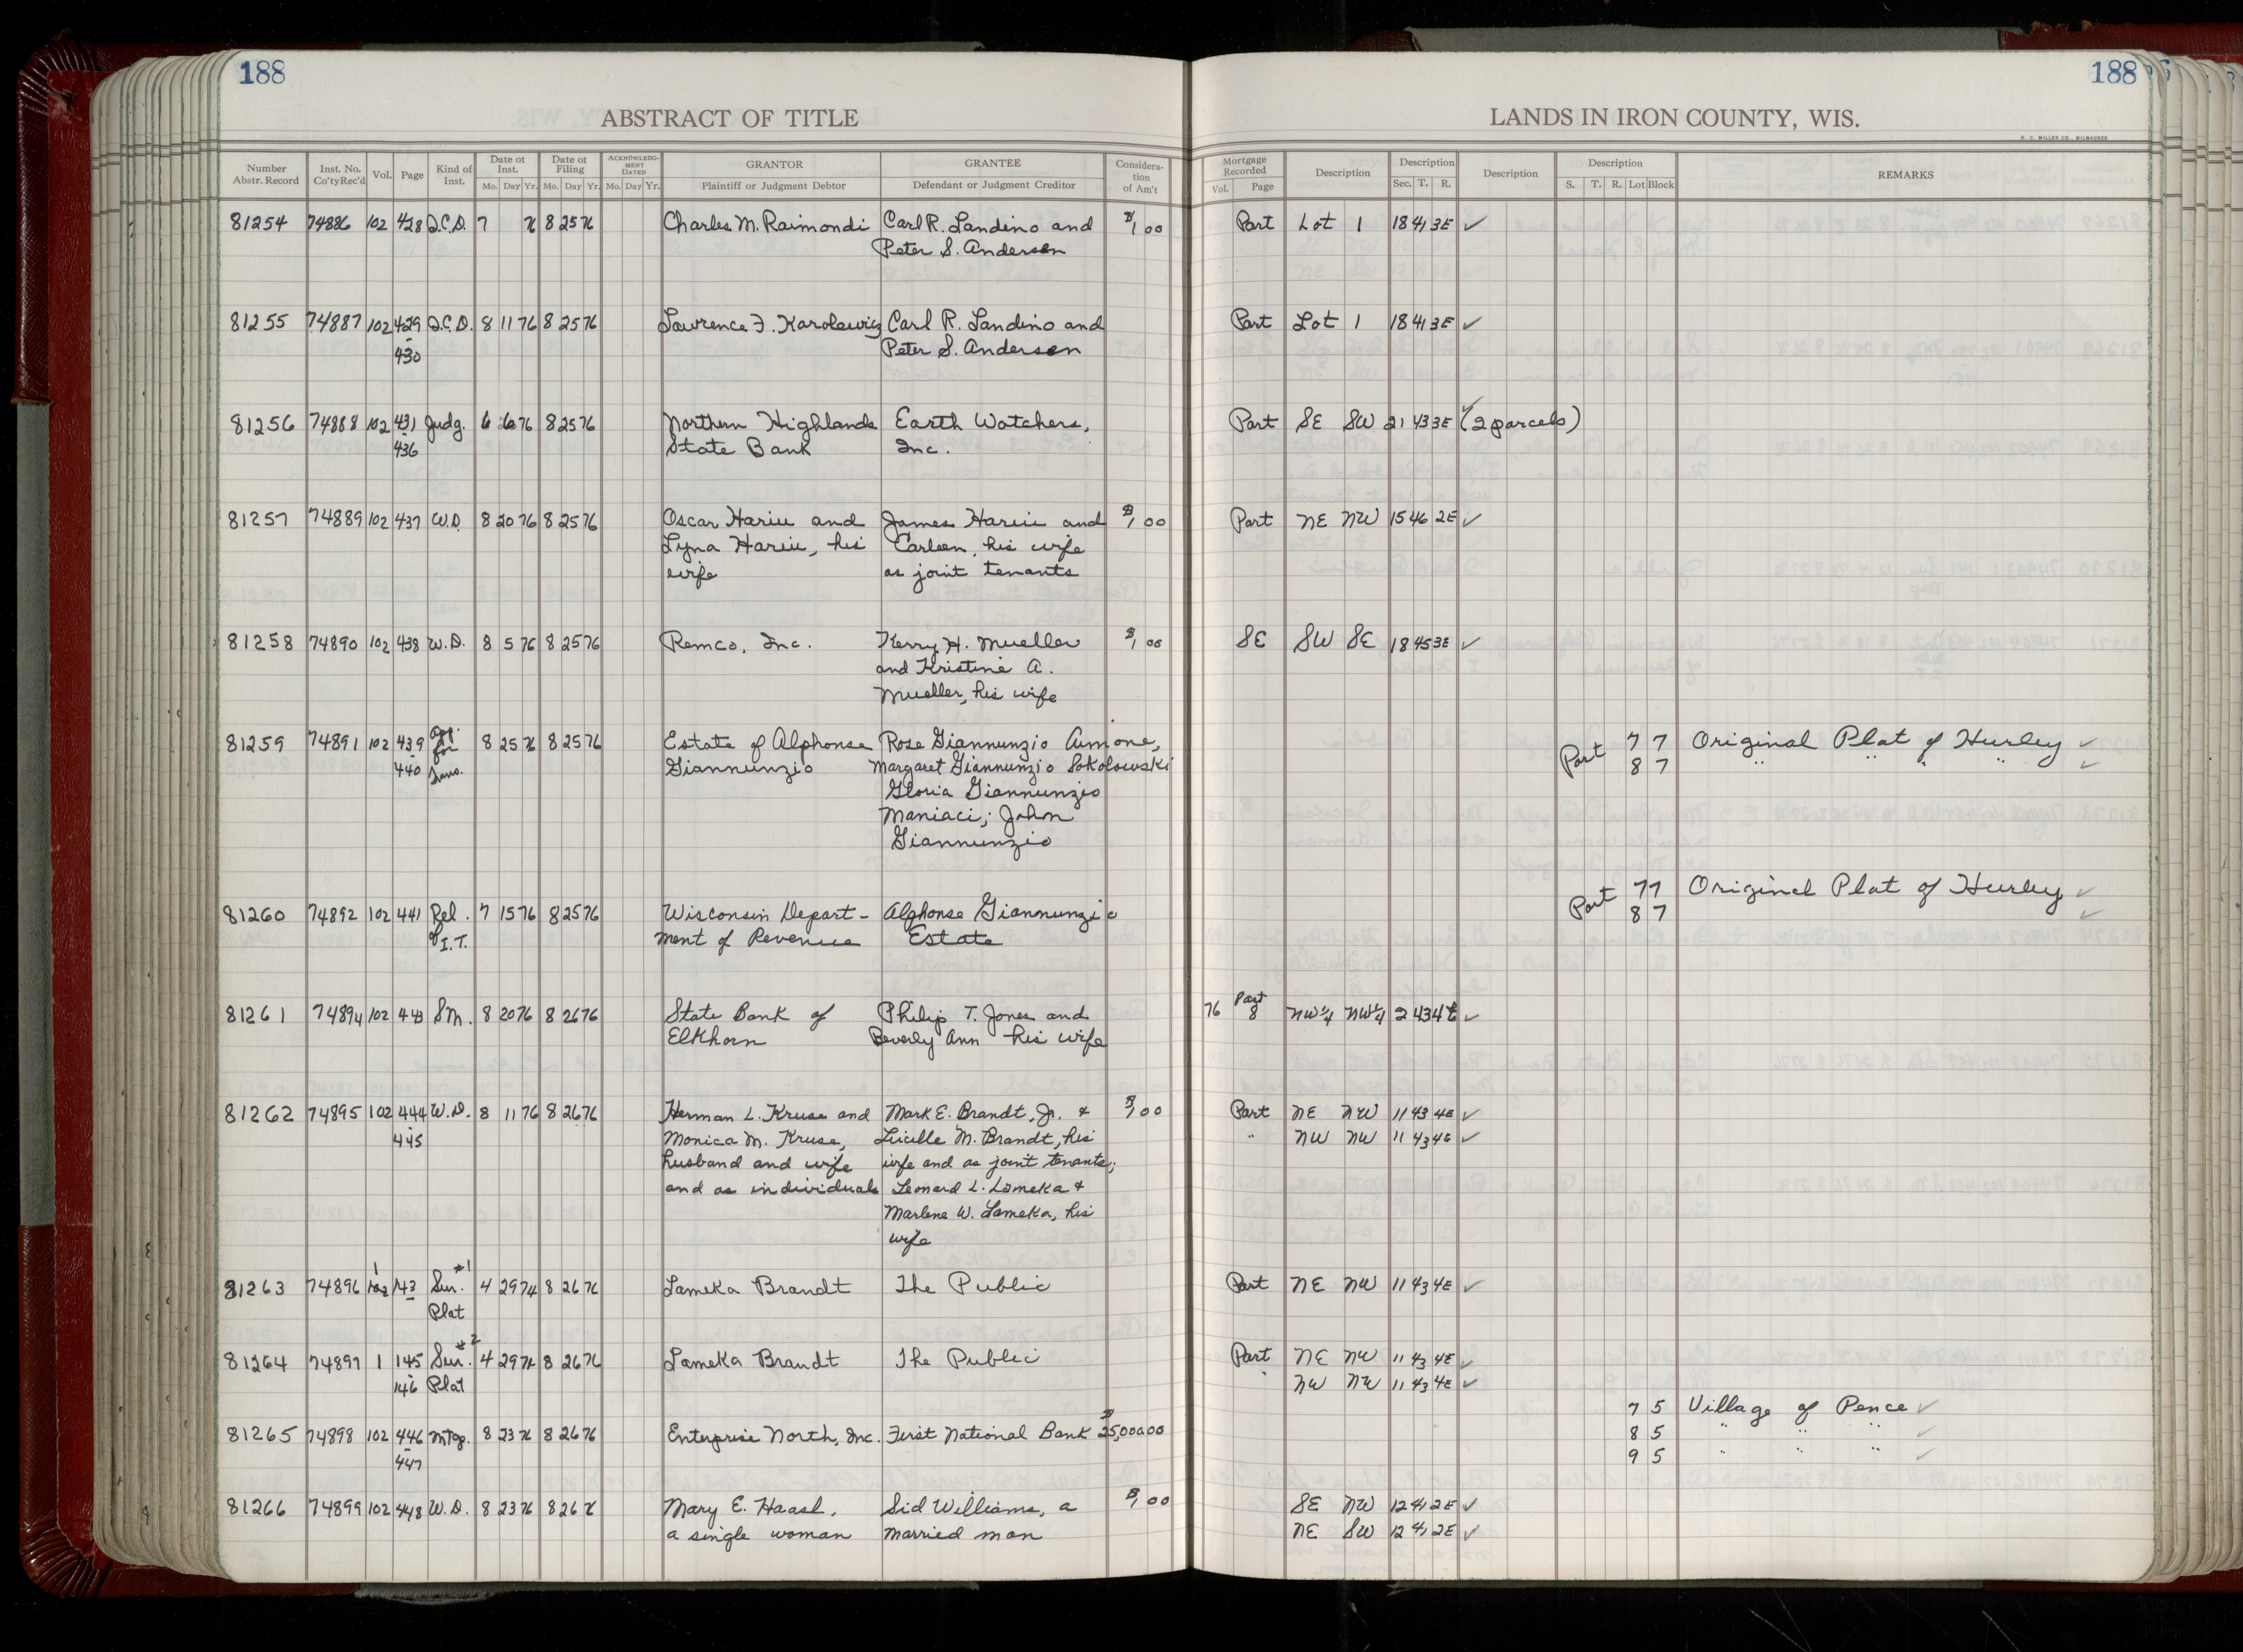 188
188
ABSTRACT OF TITLE
LANDS IN IRON COUNTY, WIS.
H. C. MILLER CO., MILWAUKEE
Number Abstr. Record | Inst. No. Co'ty Rec'd | Vol. | Page | Kind of Inst. | Date of Inst. Mo. Day Yr. | Date of Filing Mo. Day Yr. | ACKNOWLEDGMENT DATED Mo. Day Yr. | GRANTOR Plaintiff or Judgment Debtor | GRANTEE Defendant or Judgment Creditor | Consideration of Am't | Mortgage Recorded Vol. Page | Description | Description Sec. T. R. | Description | Description S. T. R. Lot Block | REMARKS
81254 74886 102 428 Q.C.D. 7 76 8 25 76 Charles M. Raimondi Carl R. Landino and $1 00 Part Lot 1 18 41 3E ✓
Peter S. Andersen
81255 74887 102 429 Q.C.D. 8 11 76 8 25 76 Lawrence F. Karolewicz Carl R. Landino and Part Lot 1 18 41 3E ✓
-430 Peter S. Andersen
81256 74888 102 431 Judg. 6 76 8 25 76 Northern Highlands Earth Watchers, Part SE SW 21 43 3E ✓ (2 parcels)
-436 State Bank Inc.
81257 74889 102 437 W.D. 8 20 76 8 25 76 Oscar Hariu and James Hariu and $1 00 Part NE NW 15 46 2E ✓
Lyna Hariu, his Carleen, his wife
wife as joint tenants
81258 74890 102 438 W.D. 8 5 76 8 25 76 Remco, Inc. Kerry H. Mueller $1 00 SE SW SE 18 45 3E ✓
and Kristine A.
Mueller, his wife
81259 74891 102 439 App. for Trans. 8 25 76 8 25 76 Estate of Alphonse Rose Giannunzio Aimone, Part 7 7 Original Plat of Hurley ✓
-440 Giannunzio Margaret Giannunzio Sokolowski 8 7 " " " " ✓
Gloria Giannunzio
Maniaci; John
Giannunzio
Part 7 7 Original Plat of Hurley ✓
81260 74892 102 441 Rel. 7 15 76 8 25 76 Wisconsin Depart- Alphonse Giannunzio 8 7 ✓
of I.T. ment of Revenue Estate
81261 74894 102 443 SM. 8 20 76 8 26 76 State Bank of Philip T. Jones and 76 8 Part NW¼ NW¼ 2 43 4E ✓
Elkhorn Beverly Ann his wife
81262 74895 102 444 W.D. 8 11 76 8 26 76 Herman L. Kruse and Mark E. Brandt, Jr. & $1 00 Part NE NW 11 43 4E ✓
-445 Monica M. Kruse, Lucille M. Brandt, his " NW NW 11 43 4E ✓
husband and wife wife and as joint tenants;
and as individuals Leonard L. Lameka &
Marlene W. Lameka, his
wife
81263 74896 1 143 Sur. #1 4 29 74 8 26 76 Lameka Brandt The Public Part NE NW 11 43 4E ✓
Plat
81264 74897 1 145 Sur. #2 4 29 74 8 26 76 Lameka Brandt The Public Part NE NW 11 43 4E ✓
-146 Plat NW NW 11 43 4E ✓
7 5 Village of Pence ✓
81265 74898 102 446 Mtg. 8 23 76 8 26 76 Enterprise North, Inc. First National Bank $25,000 00 8 5 " " " ✓
-447 9 5 " " " ✓
81266 74899 102 448 W.D. 8 23 76 8 26 76 Mary E. Haasl, Sid Williams, a $1 00 SE NW 12 41 2E ✓
a single woman married man NE SW 12 41 2E ✓